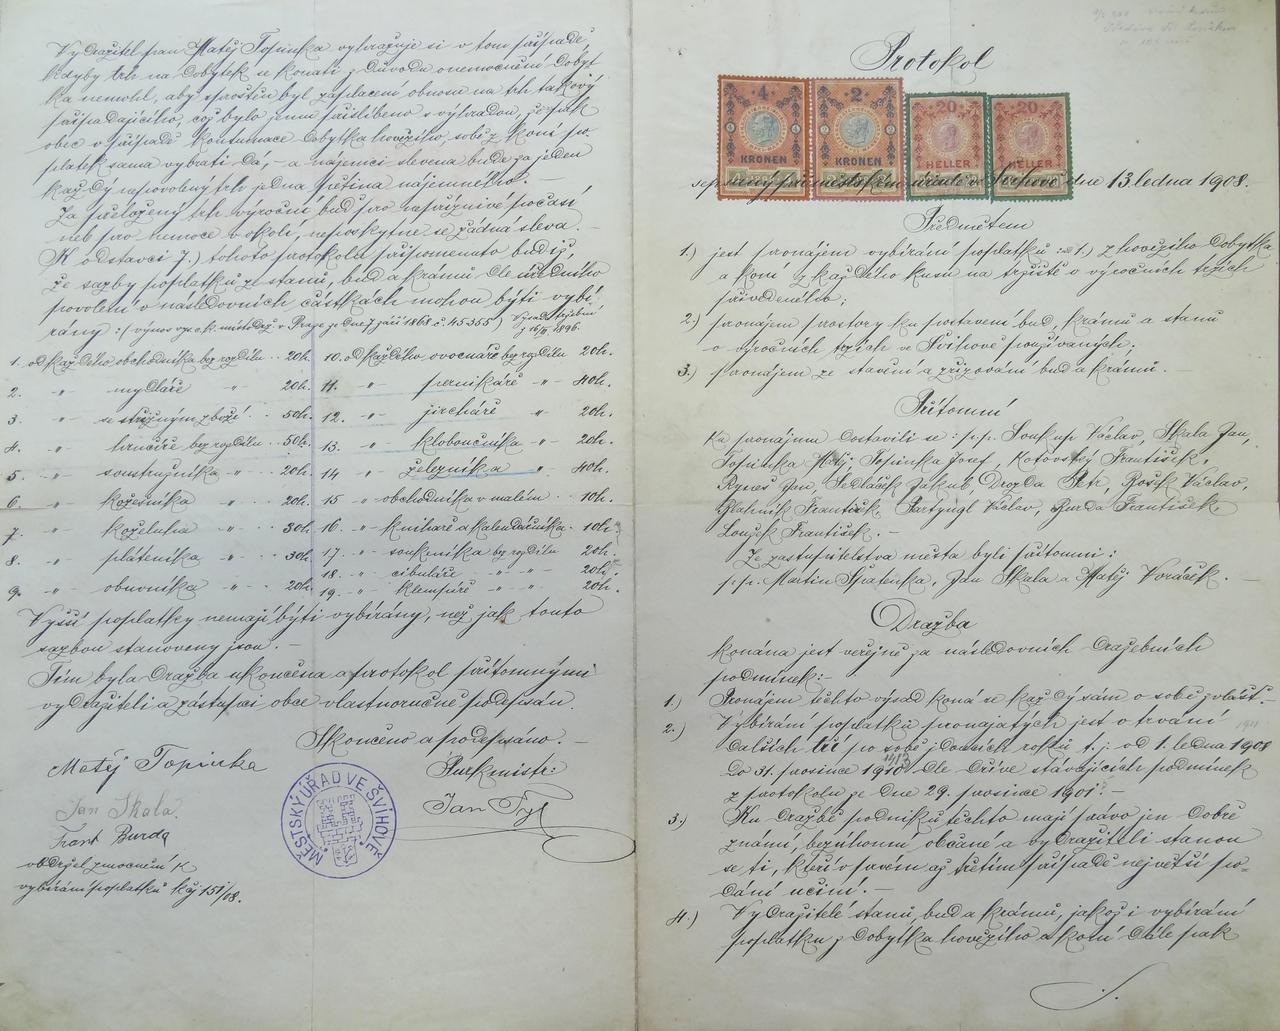 Protokol
4 KRONEN 2 KRONEN 20 HELLER 20 HELLER
sepsaný při městském úřadě ve Švihově dne 13. ledna 1908.
Předmětem
1.) jest pronájem vybírání poplatků z hovězího dobytka
a koní z každého kusu na tržiště o výročních trzích
přivedeného;
2.) pronájem prostory ku postavení bud, krámů a stanů
o výročních trzích ve Švihově používaných;
3.) pronájem ze stavění a zřizování bud a krámů. —
Přítomní
Ku pronájmu dostavili se: p.p. Soukup Václav, Skala Jan,
Topinka Matěj, Topinka Josef, Kotovský František,
Ryneš Jan, Sedláček Jakub, Drozda Petr, Rošík Václav,
František, Václav, Burda František,
Loušek František. —
Ze zastupitelstva města byli přítomni:
p.p. Martin Špatenka, Jan Skala a Matěj Voráček. —
Dražba
konána jest veřejně za následovních dražebních
podmínek:-
1.) Pronájem těchto výsad koná se každý sám o sobě zvlášť.-
2.) Vybírání poplatků pronajatých jest o trvání
dalších tří po sobě jdoucích roků t. j. od 1. ledna 1908 1911
do 31. prosince 1910 dle dříve stávajících podmínek
z protokolu ze dne 29. prosince 1901. —
3.) Ku dražbě podniků těchto mají právo jen dobře
známí, bezúhonní občané a vydražiteli stanou
se ti, kteří v prvém až třetím případě největší po-
dání učiní. —
4.) Vydražitelé stanů, bud a krámů, jakož i vybírání
poplatků z dobytka hovězího a koní dále pak
Vydražitel pan Matěj Topinka vyhrazuje si v tom případě,
kdyby trh na dobytek se konati z důvodu onemocnění dobyt
ka nemohl, aby sproštěn byl zaplacení obnosu na trh takový
připadajícího, což bylo jemu přislíbeno s výhradou, že pak
obec v případě kontumace dobytka hovězího, sobě z koní po-
platek sama vybrati dá, – a nájemci slevena bude za jeden
každý nepovolený trh jedna třetina nájemného. —
Za přeložený trh výroční buď pro nepříznivé počasí
neb pro nemoce v okolí, neposkytne se žádná sleva. —
K odstavci 7.) tohoto protokolu připomenuto budiž,
že sazby poplatků ze stanů, bud a krámů dle úředního
povolení v následovních částkách mohou býti vybí-
rány: (výnos vys. c. k. místodrž. v Praze ze dne 7 září 1868 č. 45355) Výsada tržební z 16/II 1896.
1. od každého obchodníka bez rozdílu .. 20h. 10. od každého ovocnáře bez rozdílu 20h.
2. -"- mydláře -"- 20h. 11. -"- perníkáře -"- 40h.
3. -"- se střižným zbožím .. 50h. 12. -"- jircháře -"- 20h.
4. -"- hrnčíře bez rozdílu .. 50h. 13. -"- kloboučníka -"- 20h.
5. -"- soustružníka -"- 20h. 14. -"- železníka -"- 40h.
6. -"- kožešníka -"- 20h. 15. -"- obchodníka v malém .. 10h.
7. -"- koželuha -"- 30h. 16. -"- knihaře a kalendářníka . 10h.
8. -"- pláteníka -"- 30h. 17. -"- soukeníka bez rozdílu 20h.
18. -"- cibuláře -"- 20h.
9. -"- obuvníka -"- 20h. 19. -"- klempíře -"- 20h.
Vyšší poplatky nemají býti vybírány, než jak touto
sazbou stanoveny jsou. —
Tím byla dražba ukončena a protokol přítomnými
vydražiteli a zástupci obce vlastnoručně podepsán.
Skončeno a podepsáno. —
Matěj Topinka
Purkmistr:
Jan Skala.
Jan Tyl
Frant Burda
obdržel zmocnění k
vybírání poplatků
MĚSTSKÝ ÚŘAD VE ŠVIHOVĚ